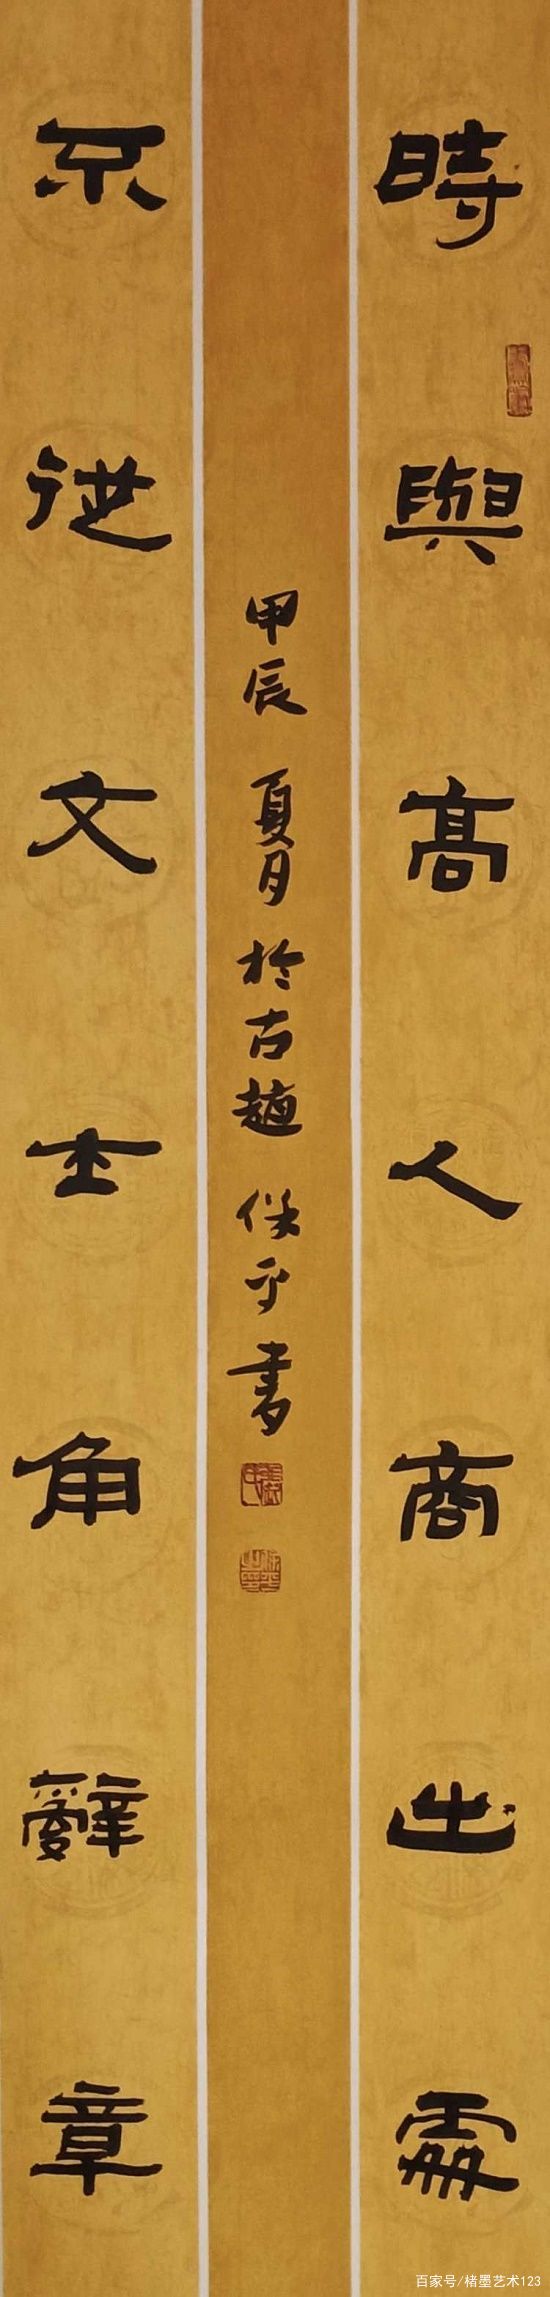 時與高人商出處
不從文士角辭章
甲辰夏月於古趙保平書
百家号/楮墨艺术123